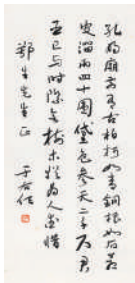 孔明廟前有古柏柯如青銅根如石霜
皮溜雨四十圍黛色參天二千尺君
臣已與時際會樹木猶為人愛惜
鄂生先生正 于右任